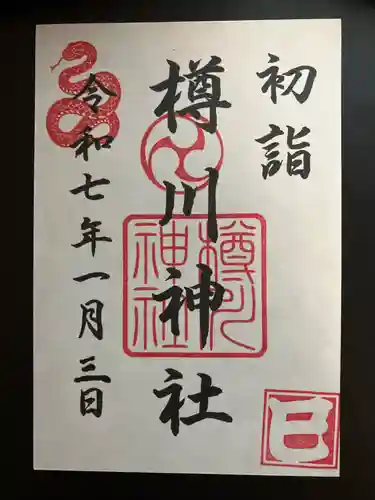 初詣
樽川神社
令和七年一月三日
樽川
神社
巳